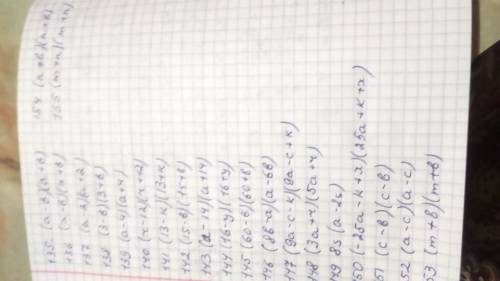 135 (a-в)(a+в)
136 (x-в)(x+в)
137 (a-2)(a+2)
138 (3-в)(3+в)
139 (a-4)(a+4)
140 (x-12)(x+12)
141 (3-к)(3+к)
142 (5-в)(5+в)
143 (a-14)(a+14)
144 (16-y)(16+y)
145 (60-в)(60+в)
146 (8в-a)(a-6в)
147 (9a-c-к)(9a-c+к)
148 (3a+4)(5a+4)
149 85(a-2c)
150 (-25a-к+2)(25a+к+2)
151 (c-в)(c-в)
152 (a-c)(a-c)
153 (m+в)(m+в)
154 (n+в)(n+в)
155 (m+n)(m+n)